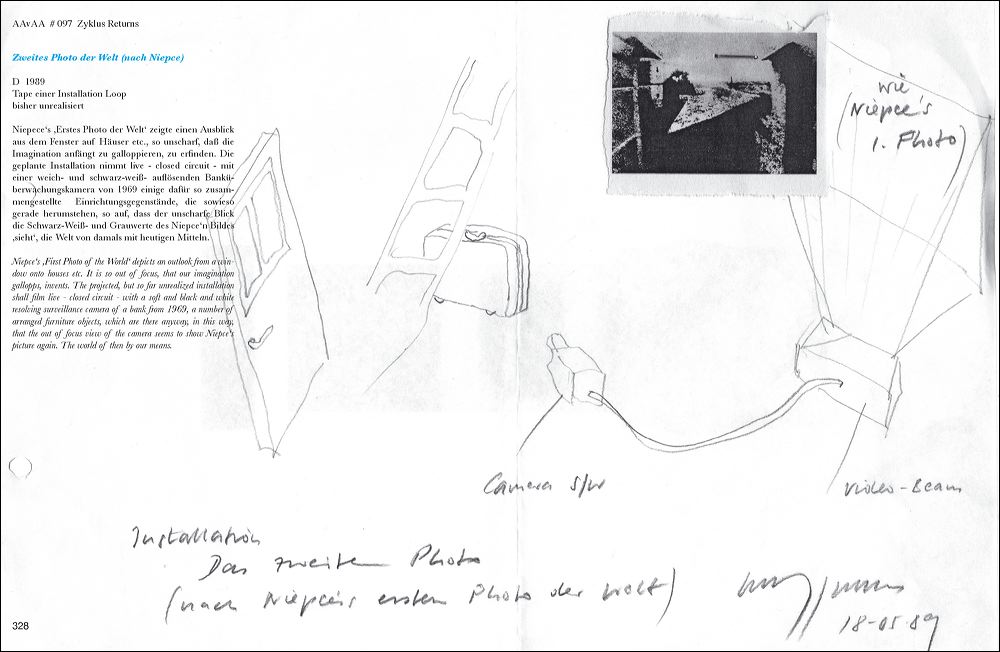 AAvAA # 097 Zyklus Returns
Zweites Photo der Welt (nach Niepce)
D 1989
Tape einer Installation Loop
bisher unrealisiert
Niepece's ‚Erstes Photo der Welt' zeigte einen Ausblick
aus dem Fenster auf Häuser etc., so unscharf, daß die
Imagination anfängt zu galloppieren, zu erfinden. Die
geplante Installation nimmt live - closed circuit - mit
einer weich- und schwarz-weiß- auflösenden Bankü-
berwachungskamera von 1969 einige dafür so zusam-
mengestellte Einrichtungsgegenstände, die sowieso
gerade herumstehen, so auf, dass der unscharfe Blick
die Schwarz-Weiß- und Grauwerte des Niepce'n Bildes
‚sieht', die Welt von damals mit heutigen Mitteln.
Niepce's ‚First Photo of the World' depicts an outlook from a win-
dow onto houses etc. It is so out of focus, that our imagination
gallopps, invents. The projected, but so far unrealized installation
shall film live - closed circuit - with a soft and black and white
resolving surveillance camera of a bank from 1969, a number of
arranged furniture objects, which are there anyway, in this way,
that the out of focus view of the camera seems to show Niepce's
picture again. The world of then by our means.
wie
(Niepce's
1. Photo)
Camera S/W
Video-Beam
Installation
Das zweiten Photo
(nach Niepce's ersten Photo der Welt)
18-05-89
328